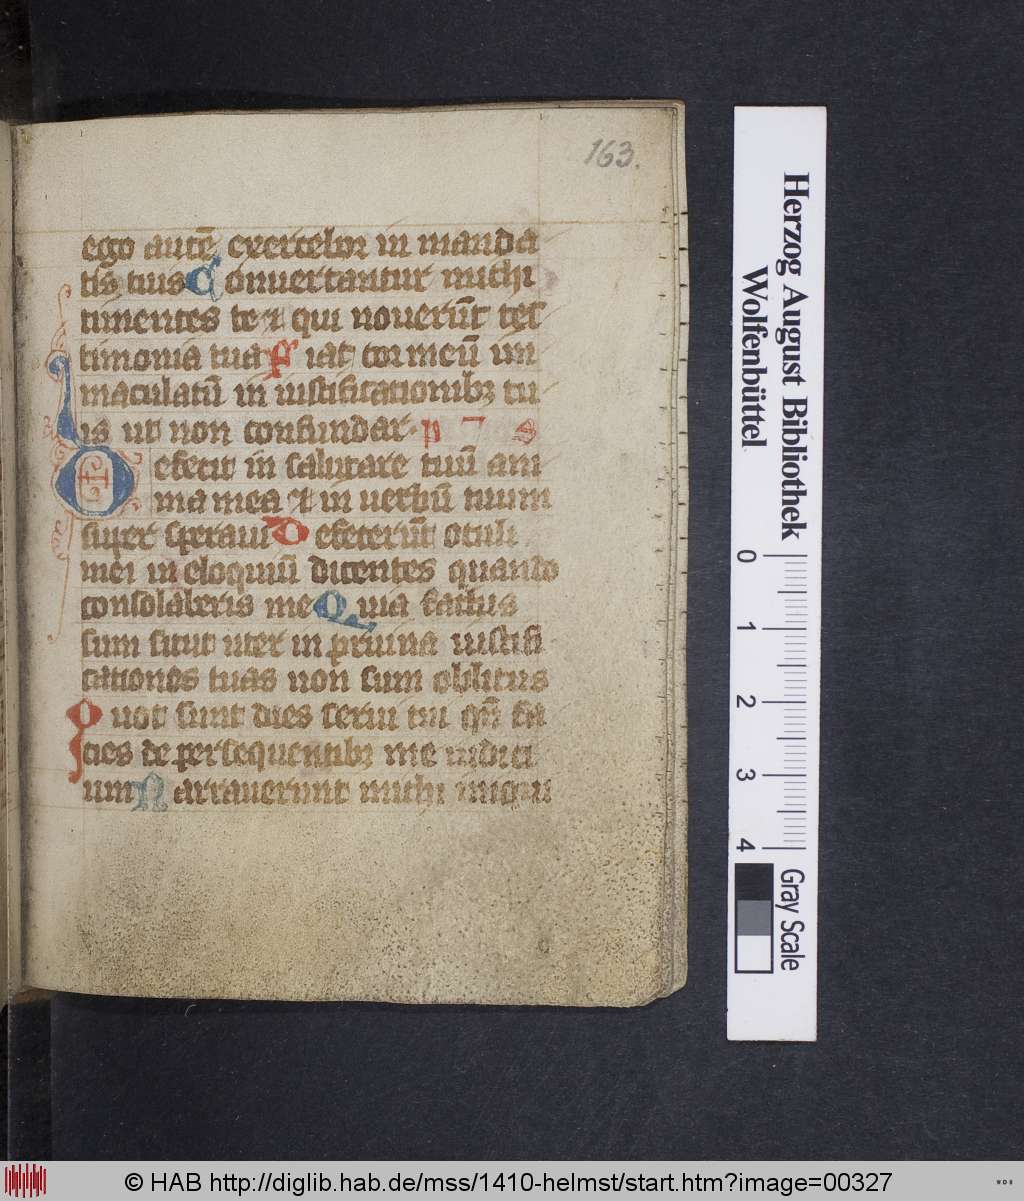 163.
ego autē exercebor in manda
tis tuis Conuertantur michi
timentes te ⁊ qui nouerūt tes
timonia tua Fiat cor meū im
maculatū in iustificationibꝫ tu
is ut non confundar. p s
Defecit in salutare tuū ani
ma mea ⁊ in uerbū tuum
super speraui Defecerūt oculi
mei in eloquiū dicentes quando
consolaberis me Quia factus
sum sicut uter in pruina iustifi
cationes tuas non sum oblitus
Quot sunt dies serui tui qn̄ fa
cies de persequentibꝫ me iudici
um Narrauerunt michi iniqui
Herzog August Bibliothek
Wolfenbüttel
0 1 2 3 4
Gray Scale
© HAB http://diglib.hab.de/mss/1410-helmst/start.htm?image=00327